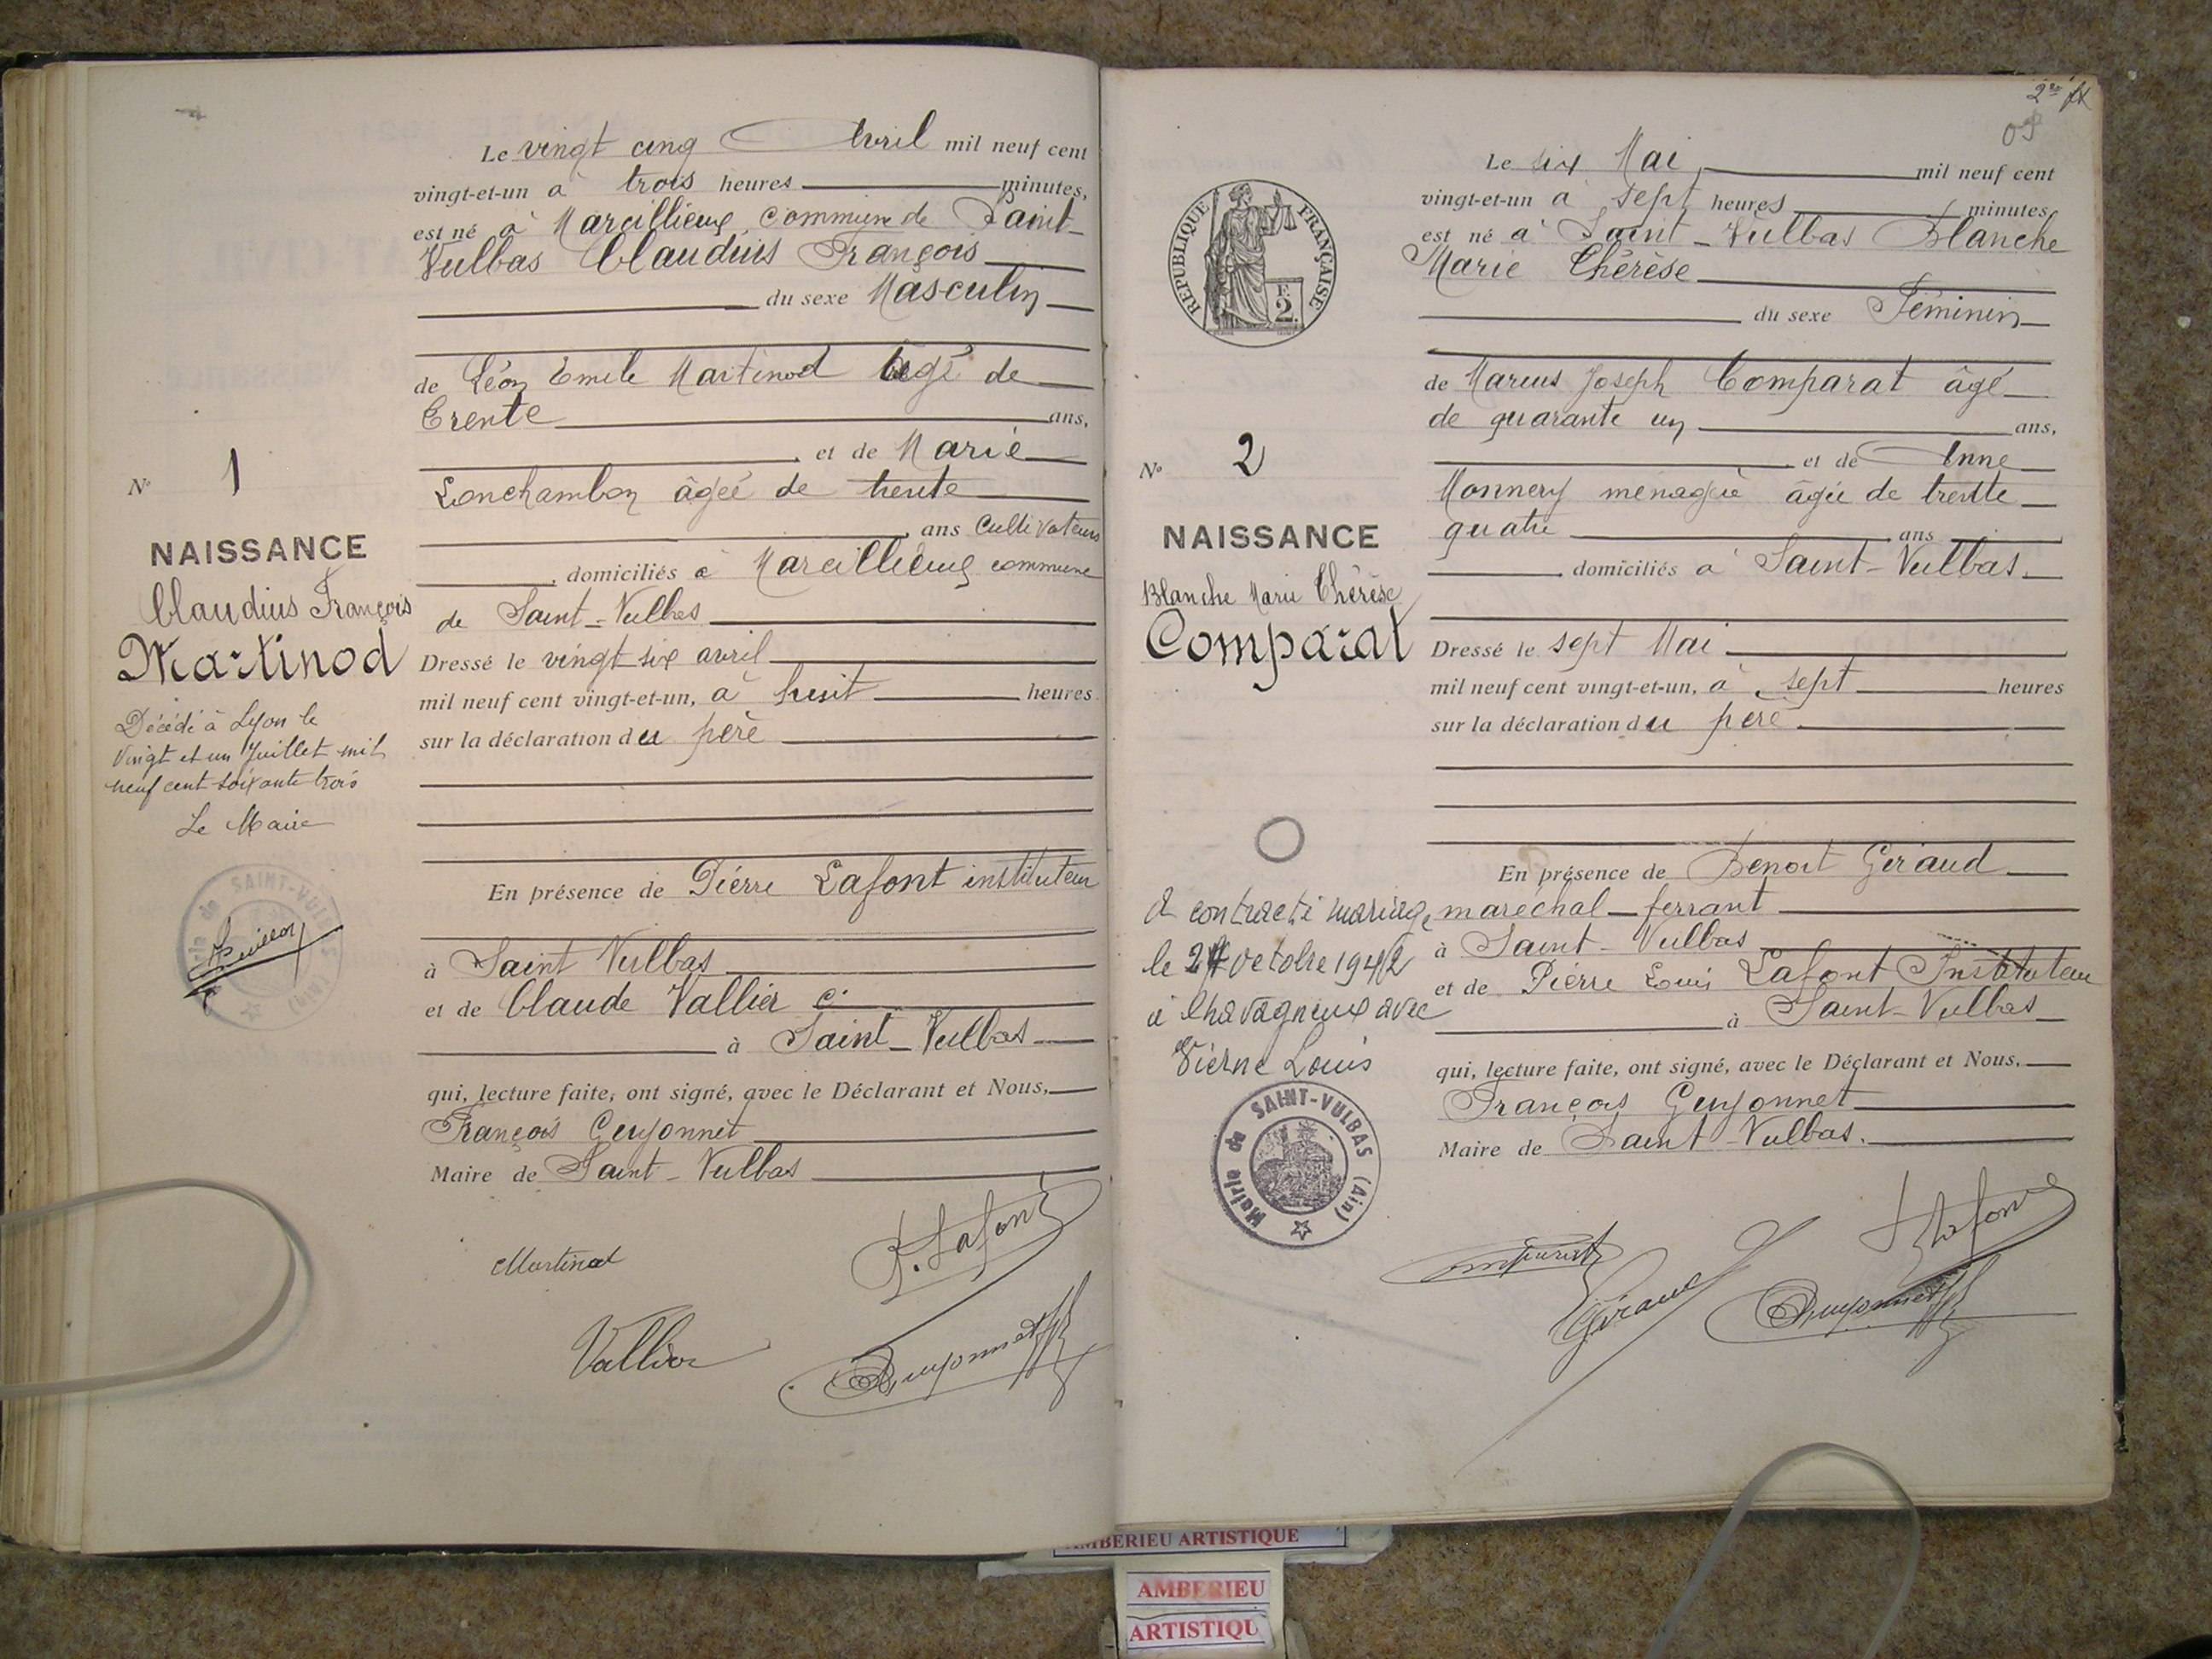 Le vingt cinq Avril mil neuf cent
vingt-et-un à trois heures minutes,
est né à Marcillieux commune de Saint-
Vulbas Claudius François
du sexe Masculin
de Léon Emile Martinod âgé de
trente ans,
et de Marie
Lonchambon âgée de trente
ans Cultivateurs
domiciliés à Marcillieux commune
de Saint-Vulbas
Dressé le vingt six avril
mil neuf cent vingt-et-un, à huit heures
sur la déclaration du père
En présence de Pierre Lafont instituteur
à Saint Vulbas
et de Claude Vallier c.
à Saint-Vulbas
qui, lecture faite, ont signé, avec le Déclarant et Nous,
François Guyonnet
Maire de Saint-Vulbas
Martinod
P. Lafont
Vallier
Guyonnet
No 1
NAISSANCE
Claudius François
Martinod
Décédé à Lyon le
Vingt et un Juillet mil
neuf cent soixante trois
Le Maire
Mairie de SAINT-VULBAS (Ain)
2me ft
RÉPUBLIQUE FRANÇAISE
F.
2.
Le six Mai mil neuf cent
vingt-et-un à sept heures minutes
est né à Saint-Vulbas Blanche
Marie Thérèse
du sexe Féminin
de Marius Joseph Comparat âgé
de quarante un ans,
et de Anne
Monnery ménagère âgée de trente
quatre ans
domiciliés à Saint-Vulbas
Dressé le sept Mai
mil neuf cent vingt-et-un, à sept heures
sur la déclaration du père
En présence de Benoit Geraud
maréchal-ferrant
à Saint-Vulbas
et de Pierre Louis Lafont Instituteur
à Saint-Vulbas
qui, lecture faite, ont signé, avec le Déclarant et Nous,
François Guyonnet
Maire de Saint-Vulbas.
Comparat
Lafont
Giraud
Guyonnet
No 2
NAISSANCE
Blanche Marie Thérèse
Comparat
A contracté mariage
le 24 octobre 1942
à Chavagneux avec
Vierne Louis
Mairie de SAINT-VULBAS (Ain)
AMBERIEU ARTISTIQUE
AMBERIEU
ARTISTIQU